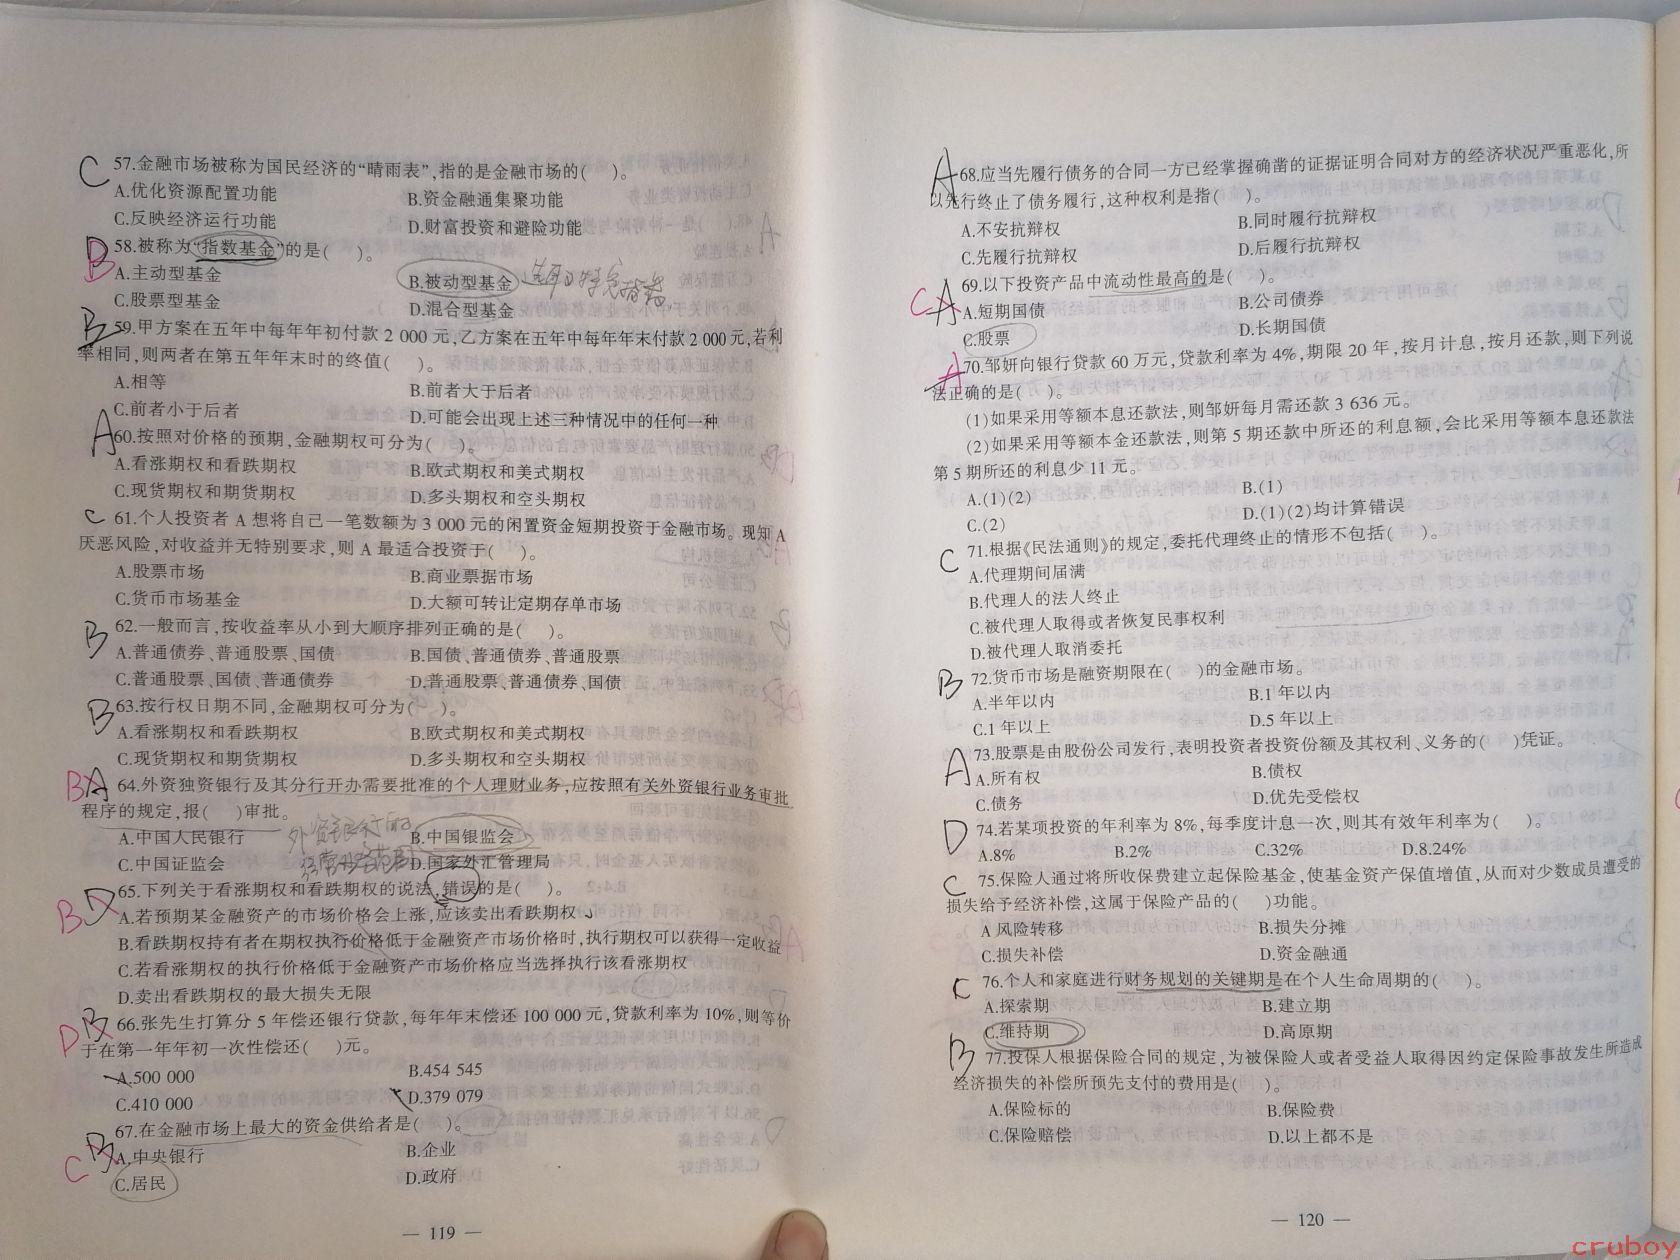 C 57.金融市场被称为国民经济的“晴雨表”,指的是金融市场的(　　)。
A.优化资源配置功能 B.资金融通集聚功能
C.反映经济运行功能 D.财富投资和避险功能
D B 58.被称为“指数基金”的是(　　)。
A.主动型基金 B.被动型基金
C.股票型基金 D.混合型基金
B 59.甲方案在五年中每年年初付款 2 000 元,乙方案在五年中每年年末付款 2 000 元,若利
率相同,则两者在第五年年末时的终值(　　)。
A.相等 B.前者大于后者
C.前者小于后者 D.可能会出现上述三种情况中的任何一种
A 60.按照对价格的预期,金融期权可分为(　　)。
A.看涨期权和看跌期权 B.欧式期权和美式期权
C.现货期权和期货期权 D.多头期权和空头期权
C 61.个人投资者 A 想将自己一笔数额为 3 000 元的闲置资金短期投资于金融市场。现知 A
厌恶风险,对收益并无特别要求,则 A 最适合投资于(　　)。
A.股票市场 B.商业票据市场
C.货币市场基金 D.大额可转让定期存单市场
B 62.一般而言,按收益率从小到大顺序排列正确的是(　　)。
A.普通债券、普通股票、国债 B.国债、普通债券、普通股票
C.普通股票、国债、普通债券 D.普通股票、普通债券、国债
B 63.按行权日期不同,金融期权可分为(　　)。
A.看涨期权和看跌期权 B.欧式期权和美式期权
C.现货期权和期货期权 D.多头期权和空头期权
B A 64.外资独资银行及其分行开办需要批准的个人理财业务,应按照有关外资银行业务审批
程序的规定,报(　　)审批。
A.中国人民银行 外资银行的 B.中国银监会
C.中国证监会 D.国家外汇管理局
B D 65.下列关于看涨期权和看跌期权的说法,错误的是(　　)。
A.若预期某金融资产的市场价格会上涨,应该卖出看跌期权
B.看跌期权持有者在期权执行价格低于金融资产市场价格时,执行期权可以获得一定收益
C.若看涨期权的执行价格低于金融资产市场价格应当选择执行该看涨期权
D.卖出看跌期权的最大损失无限
D B 66.张先生打算分 5 年偿还银行贷款,每年年末偿还 100 000 元,贷款利率为 10%,则等价
于在第一年年初一次性偿还(　　)元。
A.500 000 B.454 545
C.410 000 D.379 079
67.在金融市场上最大的资金供给者是(　　)。
C B A.中央银行 B.企业
C.居民 D.政府
— 119 —
A 68.应当先履行债务的合同一方已经掌握确凿的证据证明合同对方的经济状况严重恶化,所
以先行终止了债务履行,这种权利是指(　　)。
A.不安抗辩权 B.同时履行抗辩权
C.先履行抗辩权 D.后履行抗辩权
69.以下投资产品中流动性最高的是(　　)。
C A A.短期国债 B.公司债券
C.股票 D.长期国债
A 70.邹妍向银行贷款 60 万元,贷款利率为 4%,期限 20 年,按月计息,按月还款,则下列说
法正确的是(　　)。
(1)如果采用等额本息还款法,则邹妍每月需还款 3 636 元。
(2)如果采用等额本金还款法,则第 5 期还款中所还的利息额,会比采用等额本息还款法
第 5 期所还的利息少 11 元。
A.(1)(2) B.(1)
C.(2) D.(1)(2)均计算错误
C 71.根据《民法通则》的规定,委托代理终止的情形不包括(　　)。
A.代理期间届满
B.代理人的法人终止
C.被代理人取得或者恢复民事权利
D.被代理人取消委托
B 72.货币市场是融资期限在(　　)的金融市场。
A.半年以内 B.1 年以内
C.1 年以上 D.5 年以上
A 73.股票是由股份公司发行,表明投资者投资份额及其权利、义务的(　　)凭证。
A.所有权 B.债权
C.债务 D.优先受偿权
D 74.若某项投资的年利率为 8%,每季度计息一次,则其有效年利率为(　　)。
A.8% B.2% C.32% D.8.24%
C 75.保险人通过将所收保费建立起保险基金,使基金资产保值增值,从而对少数成员遭受的
损失给予经济补偿,这属于保险产品的(　　)功能。
A 风险转移 B.损失分摊
C.损失补偿 D.资金融通
C 76.个人和家庭进行财务规划的关键期是在个人生命周期的(　　)。
A.探索期 B.建立期
C.维持期 D.高原期
B 77.投保人根据保险合同的规定,为被保险人或者受益人取得因约定保险事故发生所造成
经济损失的补偿所预先支付的费用是(　　)。
A.保险标的 B.保险费
C.保险赔偿 D.以上都不是
— 120 —
cruboy